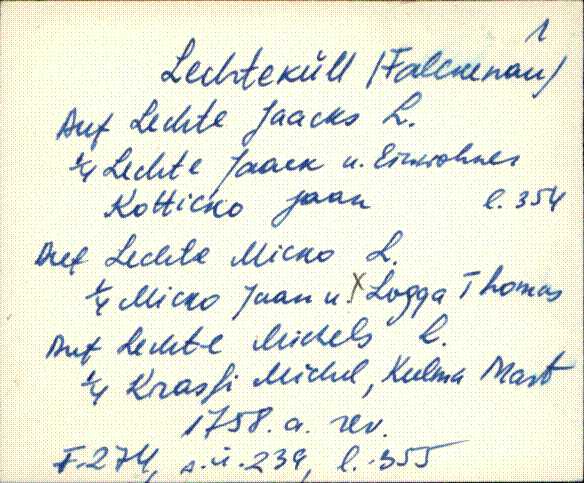 1
Lechteküll (Falckenau)
Auf Lechte Jaacks L.
1/4 Lechte Jaack u. Einwohner
Kotticko Jaan l. 354
Auf Lechte Micko L.
1/4 Micko Jaan u. x Logga Thomas
Auf Lechte Michels L.
1/4 Krassi Michel, Kulma Mart
1758. a. rev.
F. 274, s.ü. 239, l. 355